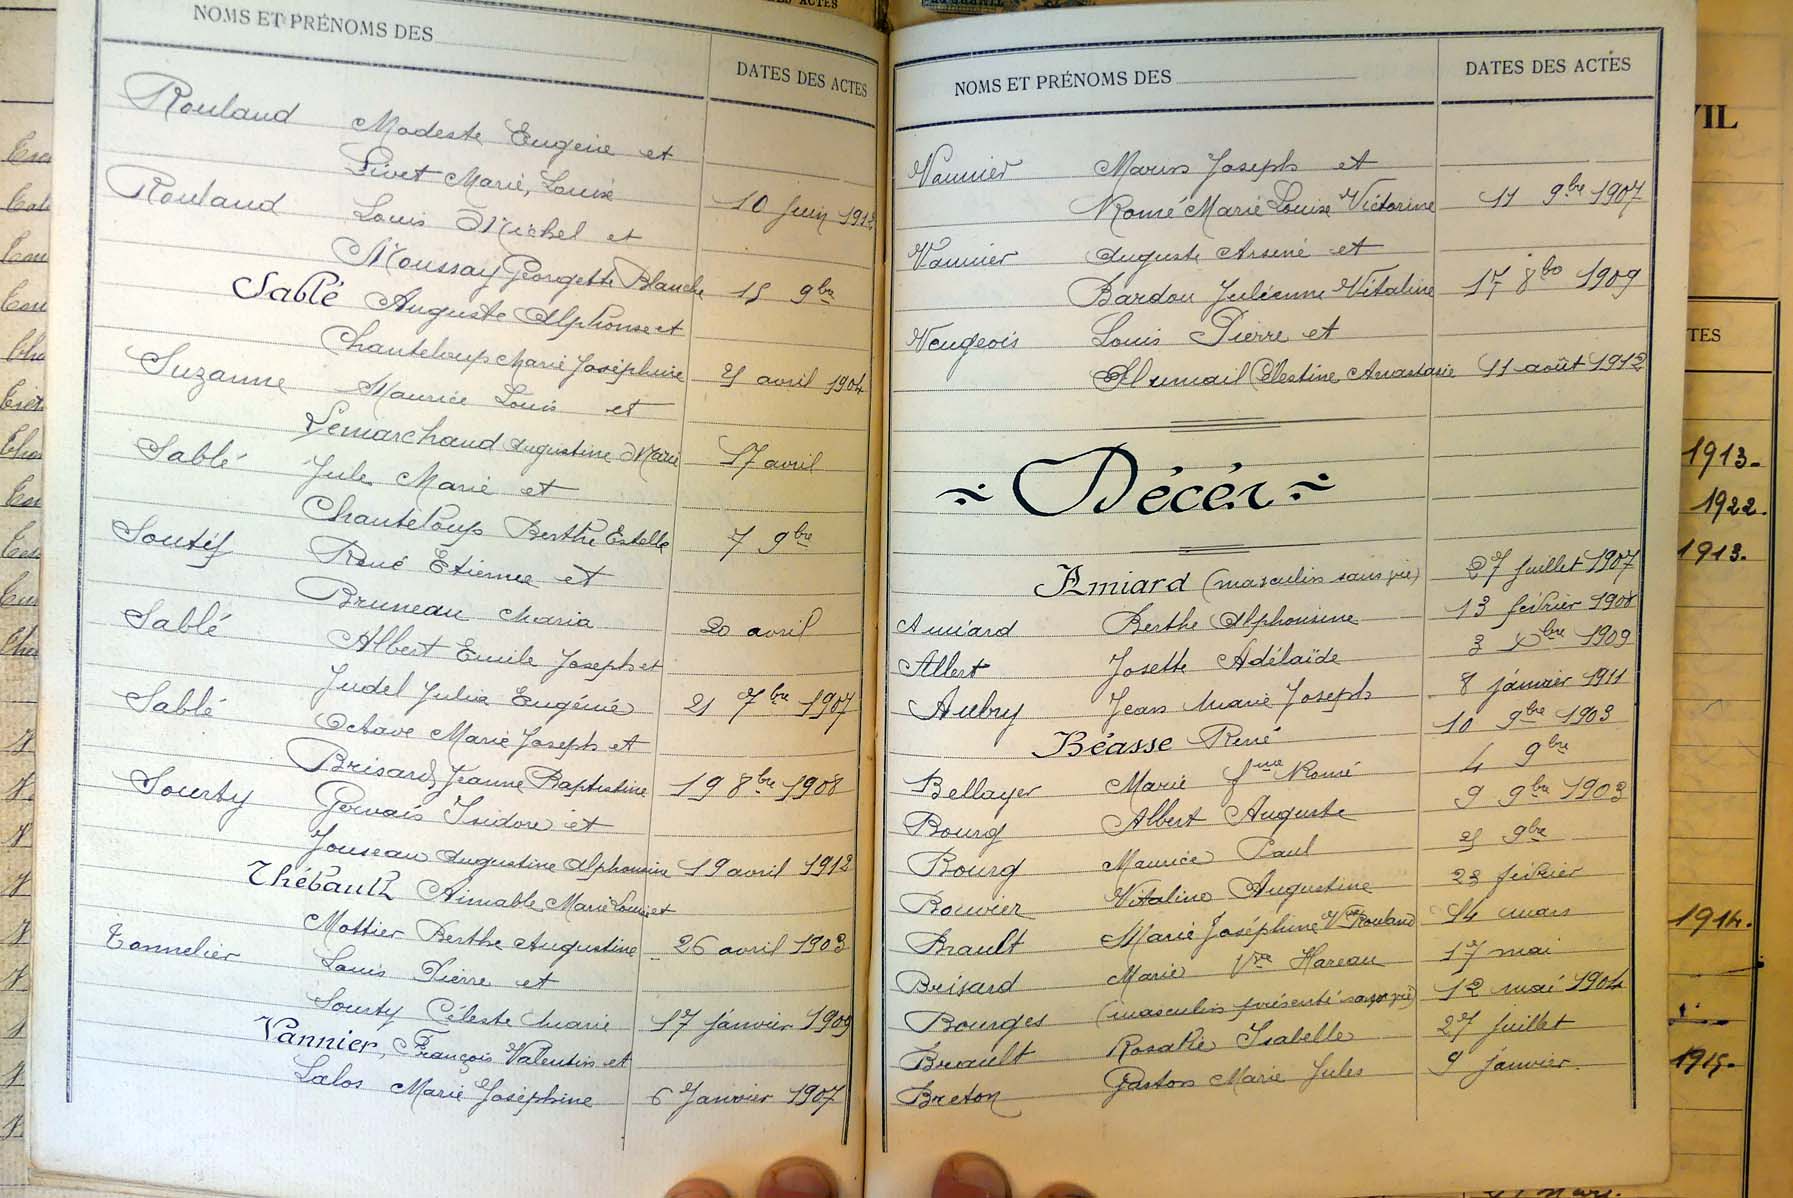 NOMS ET PRÉNOMS DES
DATES DES ACTES
Rouland Modeste Eugène et
Pivet Marie, Louise 10 juin 1912
Rouland Louis Michel et
Moussay Georgette Blanche 15 9bre
Sablé Auguste Alphonse et
Chanteloup Marie Joséphine 21 avril 1904
Suzanne Maurice Louis et
Lemarchand Augustine Marie 17 avril
Sablé Jule Marie et
Chanteloup Berthe Estelle 7 9bre
Soutif René Etienne et
Bruneau Maria 20 avril
Sablé Albert Emile Joseph et
Judel Julia Eugénie 21 7bre 1907
Sablé Octave Marie Joseph et
Brisard Jeanne Baptistine 19 8bre 1908
Sourty Gervais Isidore et
Jouseau Augustine Alphonsine 19 avril 1912
Thébault Aimable Marie Louis et
Mottier Berthe Augustine 26 avril 1903
Tonnelier Louis Pierre et
Sourty Céleste Marie 17 janvier 1909
Vannier, François Valentin et
Lalos Marie Joséphine 6 Janvier 1907
NOMS ET PRÉNOMS DES
DATES DES ACTES
Vannier Marin Joseph et
Romé Marie Louise Victorine 11 9bre 1907
Vannier Auguste Arsène et
Bardou Juliénne Vitaline 17 8bre 1909
Veugeois Louis Pierre et
Célestine Anastasie 11 août 1912
Décés
Amiard (masculin sans vie) 27 juillet 1907
Amiard Berthe Alphonsine 13 février 1908
Albert Josette Adélaïde 3 Xbre 1909
Aubry Jean Marie Joseph 8 janvier 1911
Béasse René 10 9bre 1903
Bellayer Marie fme Romé 4 9bre
Bourg Albert Auguste 9 9bre 1903
Bourg Maurice Paul 21 9bre
Bouvier Vitaline Augustine 23 février
Brault Marie Joséphine Vve Rouland 14 mars
Brisard Marie Vve Hareau 17 mai
Bourges (masculin présenté sans vie) 12 mai 1904
Breault Rosalie Isabelle 27 juillet
Breton Gaston Marie Jules 9 janvier
VIL
TES
1913.
1922.
1913.
1914.
1915.